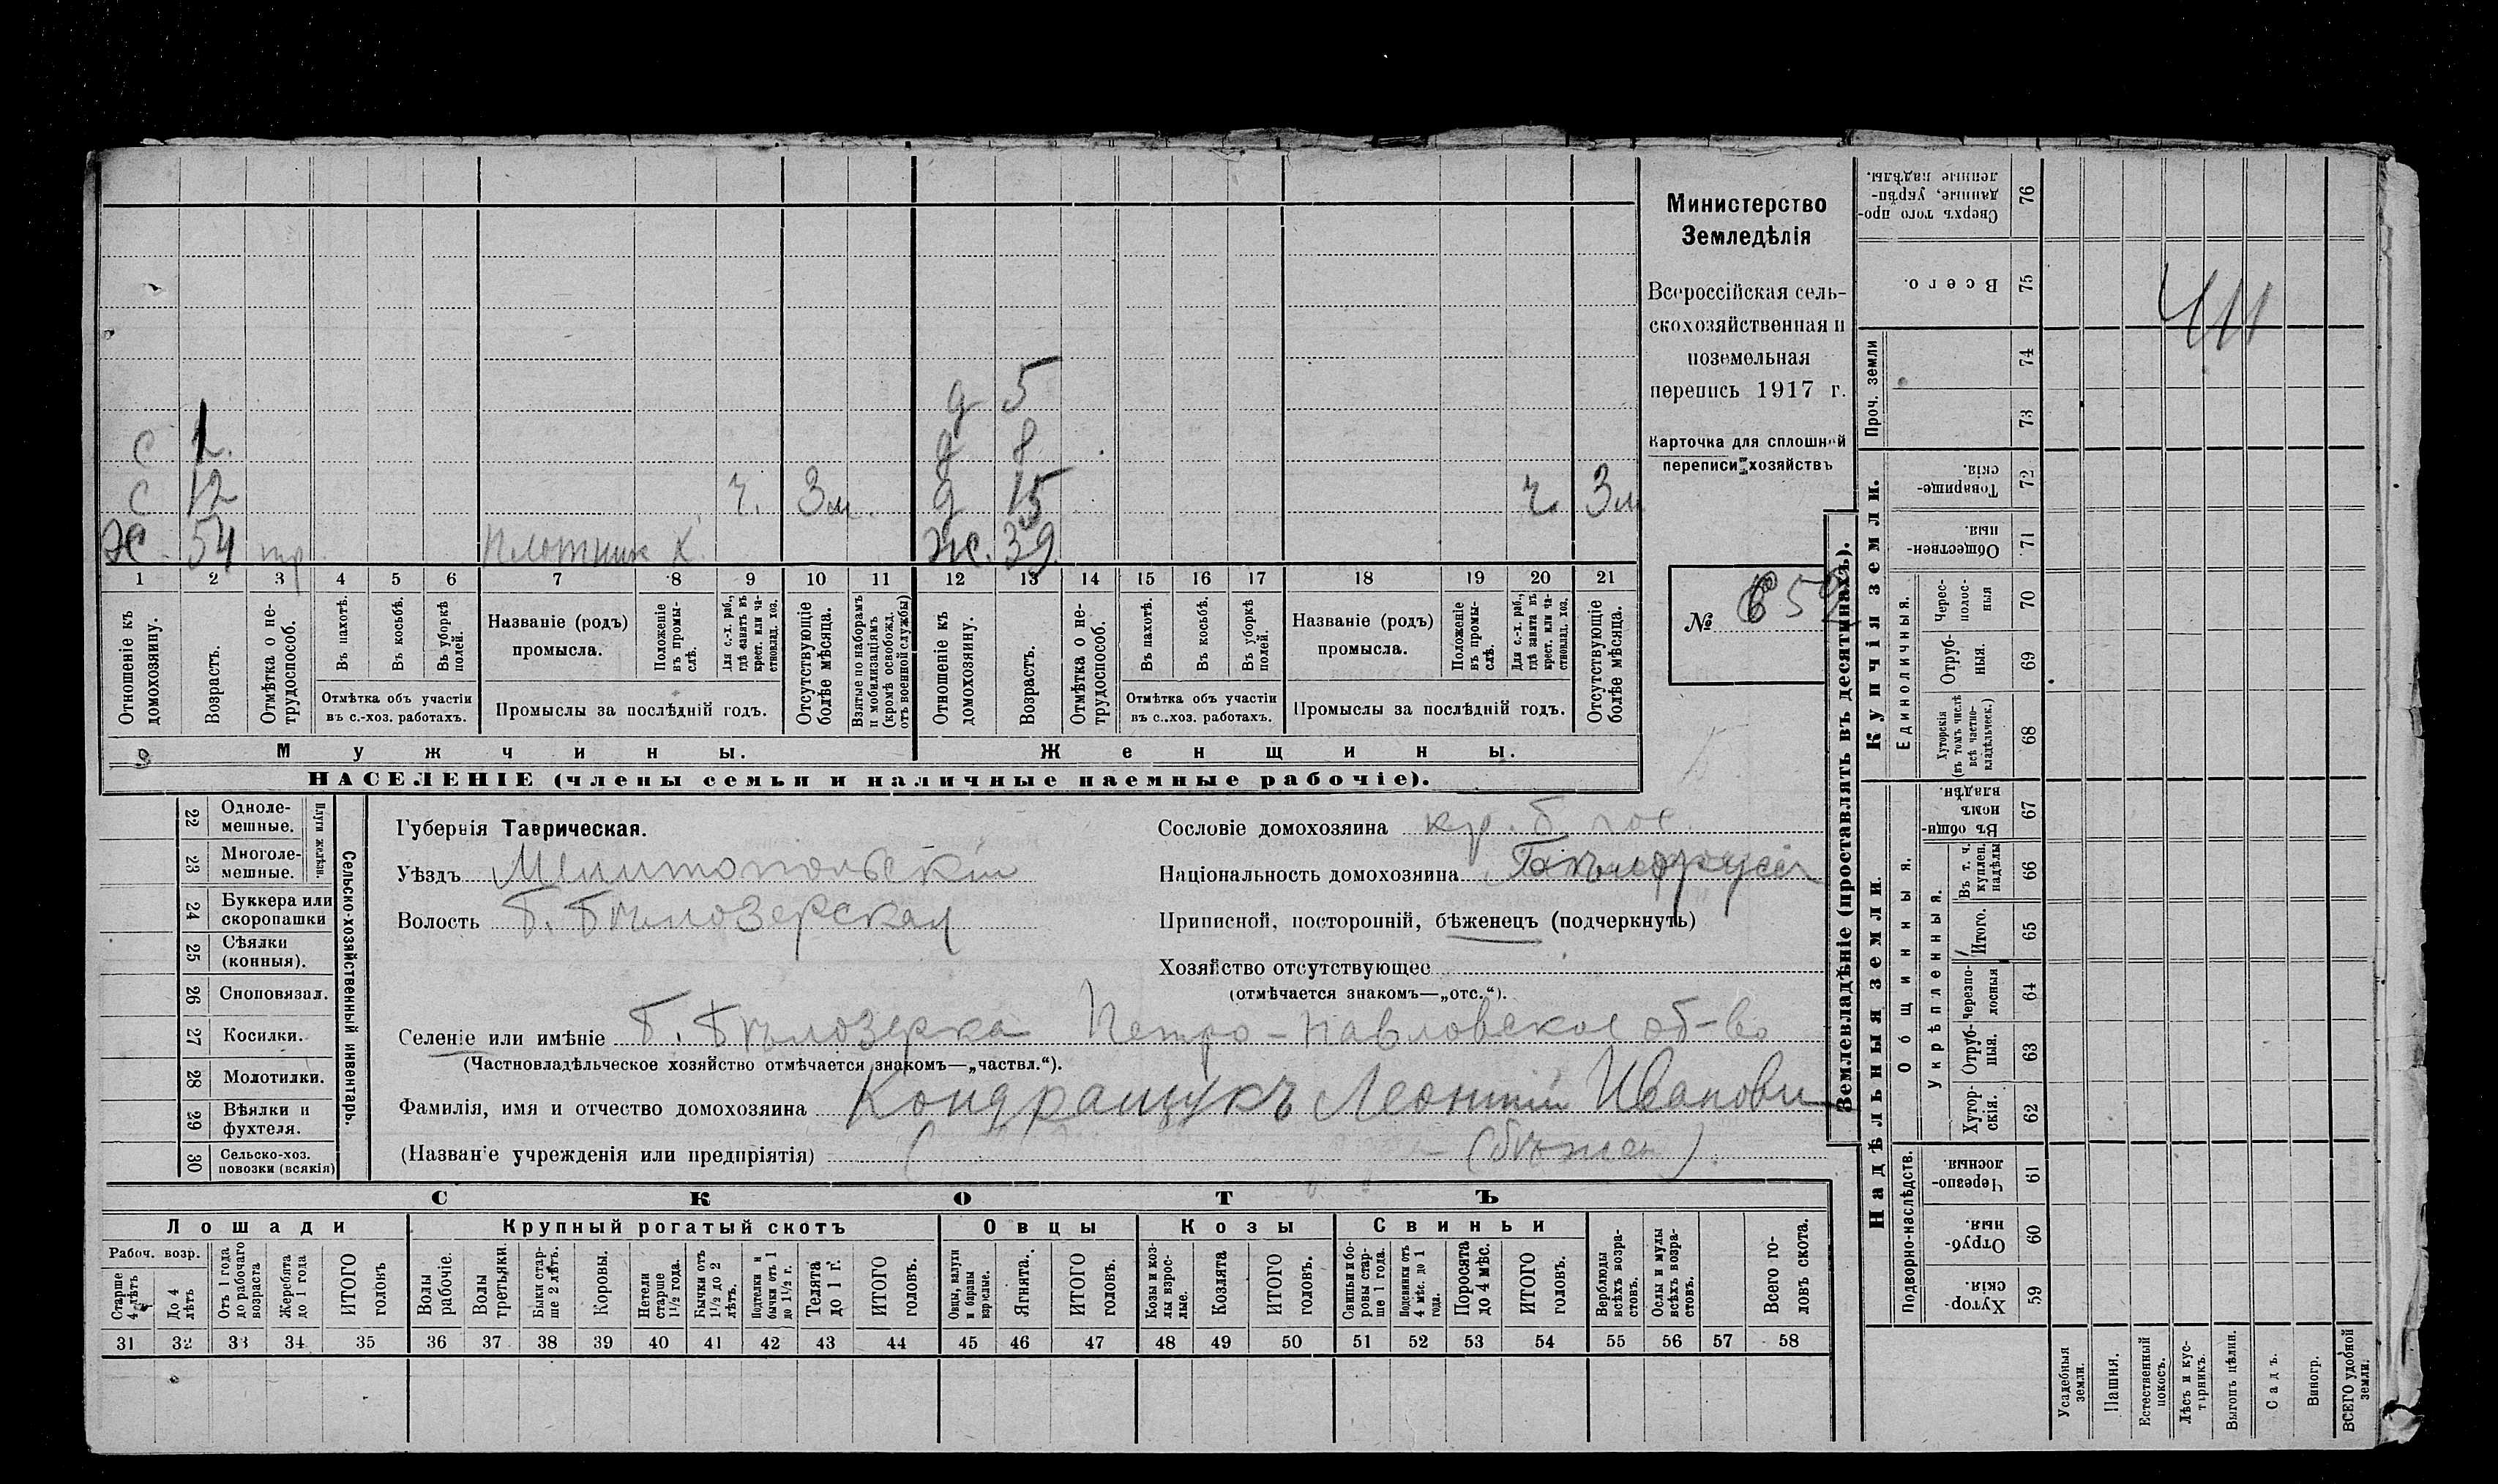 Министерство
Земледѣлія
Всероссійская сель-
скохозяйственная и
поземельная
перепись 1917 г.
Карточка для сплошной
переписи хозяйствъ
№ 652
д 5
с 1 д 8
с 12 ч. 3 м. д 15 ч. 3 м
Х. 54 тр. плотник Х. Ж. 39
1 2 3 4 5 6 7 8 9 10 11 12 13 14 15 16 17 18 19 20 21
Отношеніе къ домохозяину.
Возрастъ.
Отмѣтка о не-трудоспособ.
Въ пахотѣ.
Въ косьбѣ.
Въ уборкѣ полей.
Отмѣтка объ участіи въ с.-хоз. работахъ.
Названіе (родъ) промысла.
Положеніе въ промы-слѣ.
Для с.-х. раб., гдѣ занятъ въ крест. или ча-стновлад. хоз.
Промыслы за послѣдній годъ.
Отсутствующіе болѣе мѣсяца.
Взятые по наборамъ и мобилизаціямъ (кромѣ освобожд. отъ военной службы)
Отношеніе къ домохозяину.
Возрастъ.
Отмѣтка о не-трудоспособ.
Въ пахотѣ.
Въ косьбѣ.
Въ уборкѣ полей.
Отмѣтка объ участіи въ с.-хоз. работахъ.
Названіе (родъ) промысла.
Положеніе въ промы-слѣ.
Для с.-х. раб., гдѣ занята въ крест. или ча-стновлад. хоз.
Промыслы за послѣдній годъ.
Отсутствующіе болѣе мѣсяца.
Мужчины. Женщины.
НАСЕЛЕНІЕ (члены семьи и наличные наемные рабочіе).
22 Одноле-мешные.
23 Многоле-мешные.
Плуги желѣзн.
24 Буккера или скоропашки
25 Сѣялки (конныя).
26 Сноповязал.
27 Косилки.
28 Молотилки.
29 Вѣялки и фухтеля.
30 Сельско-хоз. повозки (всякія)
Сельско-хозяйственный инвентарь.
Губернія Таврическая.
Уѣздъ Мелитопольскій
Волость Б. Бѣлозерская
Сословіе домохозяина кр. б. пос.
Національность домохозяина
Приписной, посторонній, бѣженецъ (подчеркнуть)
Хозяйство отсутствующее
(отмѣчается знакомъ—„отс.“).
Селеніе или имѣніе Б. Бѣлозерка Петро-Павловское об-во
(Частновладѣльческое хозяйство отмѣчается знакомъ—„частвл.“).
Фамилія, имя и отчество домохозяина Кондращукъ Леонтій Иванови
(Названіе учрежденія или предпріятія) (бѣжен)
СКОТЪ
Лошади Крупный рогатый скотъ Овцы Козы Свиньи
Рабоч. возр.
Старше 4 лѣтъ
До 4 лѣтъ
Отъ 1 года до рабочаго возраста
Жеребята до 1 года
ИТОГО головъ
Волы рабочіе.
Волы третьяки.
Быки стар-ше 2 лѣтъ.
Коровы.
Нетели старше 1½ года.
Бычки отъ 1½ до 2 лѣтъ.
Подтелки и бычки отъ 1 до 1½ г.
Телята до 1 г.
ИТОГО головъ.
Овцы, валухи и бараны взрослые.
Ягнята.
ИТОГО головъ.
Козы и коз-лы взрос-лые.
Козлята
ИТОГО головъ.
Свиньи и бо-ровы стар-ше 1 года.
Подсвинки отъ 4 мѣс. до 1 года.
Поросята до 4 мѣс.
ИТОГО головъ.
Верблюды всѣхъ возра-стовъ.
Ослы и мулы всѣхъ возра-стовъ.
Всего го-ловъ скота.
31 32 33 34 35 36 37 38 39 40 41 42 43 44 45 46 47 48 49 50 51 52 53 54 55 56 57 58
Землевладѣніе (проставлять въ десятинахъ).
Надѣльныя земли.
Купчія земли.
Проч. земли
Подворно-наслѣдств.
Общинныя.
Укрѣпленныя.
Единоличныя.
Хутор-скія. 59
Отруб-ныя. 60
Черезпо-лосныя. 61
Хутор-скія. 62
Отруб-ныя. 63
черезпо-лосныя 64
Итого. 65
Въ т. ч. куплен. надѣлы 66
Въ общи-номъ владѣн. 67
Хуторскія (въ томъ числѣ всѣ частно-владѣльческ.) 68
Отруб-ныя. 69
Черес-полос-ныя 70
Обществен-ныя. 71
Товарище-скія. 72
73
74
Всего. 75
Сверхъ того про-данные, укрѣп-ленные надѣлы. 76
Усадебныя земли.
Пашня.
Естественный покосъ.
Лѣсъ и кус-тарникъ.
Выгонъ цѣлин.
Садъ.
Виногр.
ВСЕГО удобной земли.